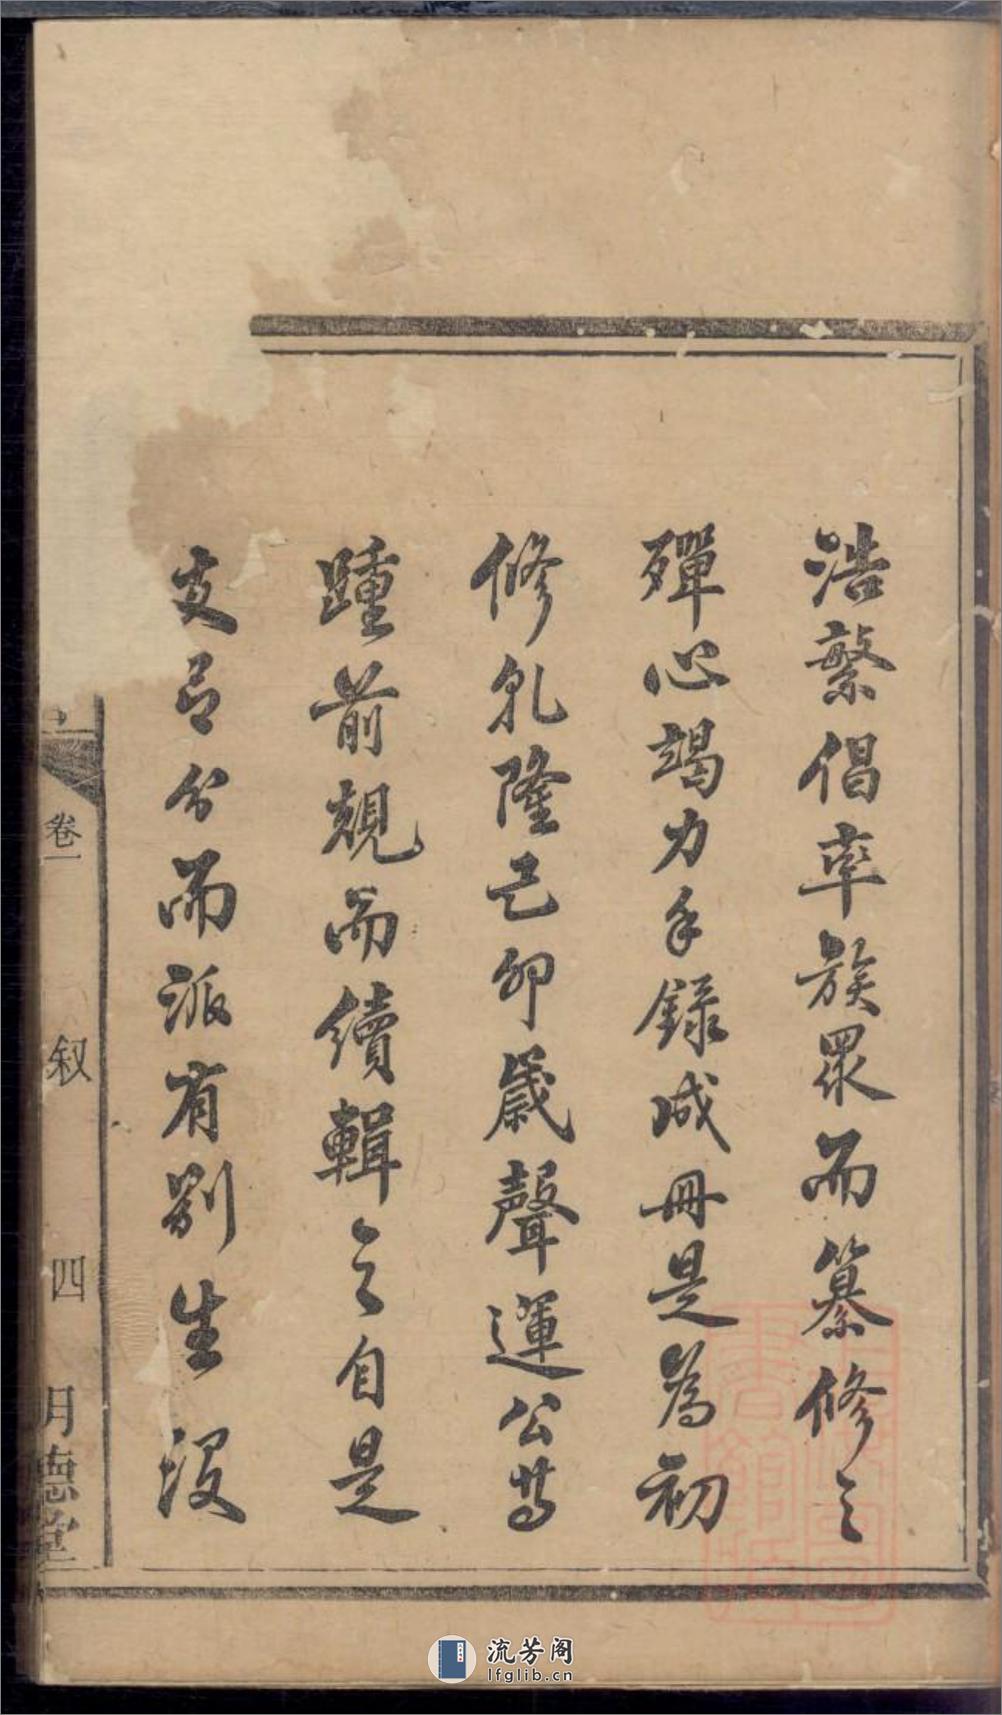 浩繁倡率族眾而纂修之
殫心竭力手錄成冊是為初
修乾隆己卯歲聲運公等
踵前規而續輯之自是
支㠯分而派有別生沒
卷一
叙
四
明德堂
流芳阁
lfglib.cn